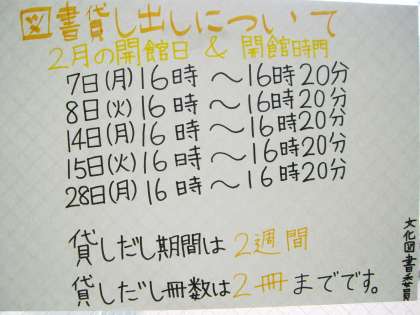 図書貸し出しについて
2月の開館日 & 開館時間
7日(月)16時〜16時20分
8日(火)16時〜16時20分
14日(月)16時〜16時20分
15日(火)16時〜16時20分
28日(月)16時〜16時20分
貸しだし期間は2週間
貸しだし冊数は2冊までです。
文化図書委員